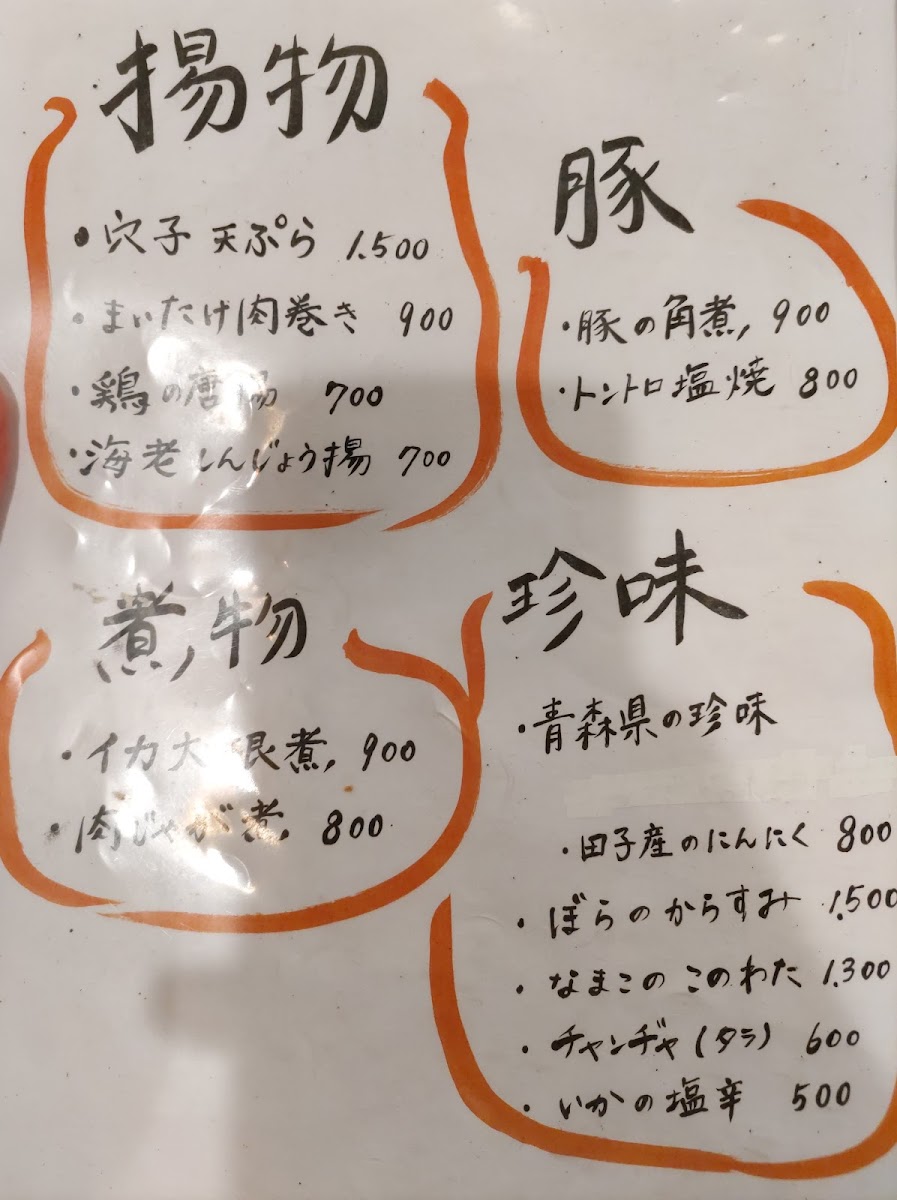 揚物
・穴子 天ぷら 1.500
・まいたけ肉巻き 900
・鶏の唐揚 700
・海老しんじょう揚 700
豚
・豚の角煮 900
・トントロ塩焼 800
煮物
・イカ大根煮 900
・肉じゃが煮 800
珍味
・青森県の珍味
・田子産のにんにく 800
・ぼらのからすみ 1.500
・なまこのこのわた 1.300
・チャンヂャ(タラ) 600
・いかの塩辛 500